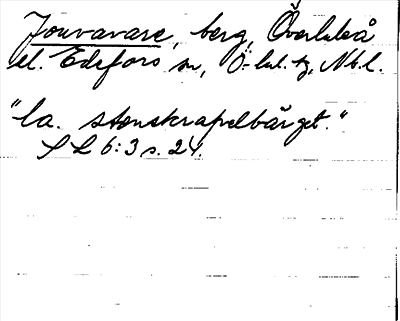 Jouvavare, berg, Överluleå
el. Edefors sn, Ö-lul. tg, Nb.l.
"la. stenskrapelbärget."
SL 6:3 s. 24.